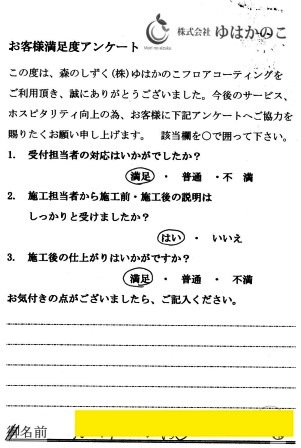 株式会社 ゆはかのこ
お客様満足度アンケート
この度は、森のしずく(株)ゆはかのこフロアコーティングを
ご利用頂き、誠にありがとうございました。今後のサービス、
ホスピタリティ向上の為、お客様に下記アンケートへご協力を
賜りたくお願い申し上げます。 該当欄を〇で囲って下さい。
1. 受付担当者の対応はいかがでしたか？
満足 ・ 普通 ・不 満
2. 施工担当者から施工前・施工後の説明は
しっかりと受けましたか？
はい ・ いいえ
3. 施工後の仕上がりはいかがですか？
満足 ・ 普通 ・ 不満
お気付きの点がございましたら、ご記入ください。
御名前